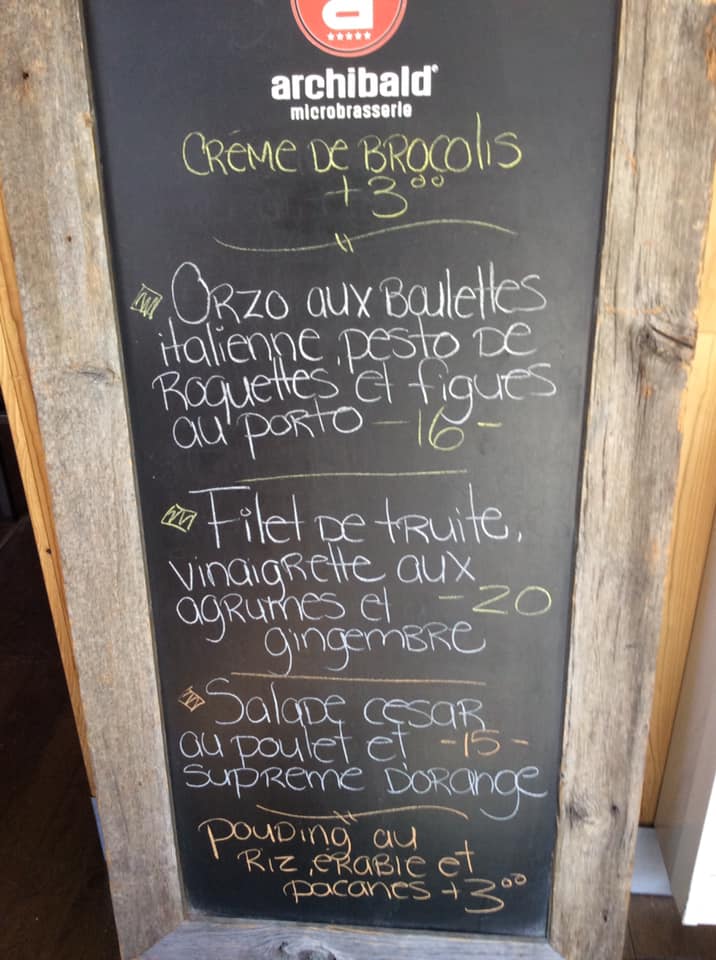 a
archibald
microbrasserie
CRÈME DE BROCOLIS
+3⁰⁰
ORZO aux Boulettes
italienne, pesto DE
Roquettes et figues
au porto -16-
Filet DE tRuite,
vinaigRette aux
agRumes et -20
gingemBRE
SalaDE CESAR
au poulet et -15-
SUPREME D'ORange
pouDing au
Riz, éRaBlE et
pacanes +3⁰⁰